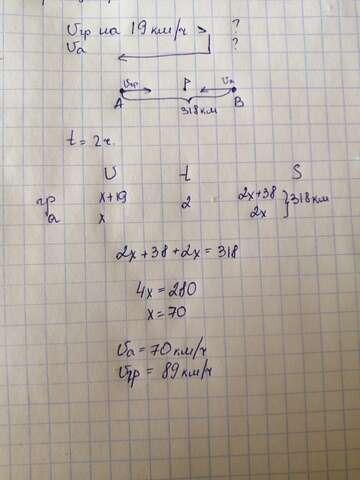 Vгр на 19 км/ч > ?
Vа ?
Vгр P Vа
A B
318 км
t = 2 ч.
V t S
гр x+19 2 2x+38 } 318 км
а x 2x
2x+38+2x = 318
4x = 280
x = 70
Vа = 70 км/ч
Vгр = 89 км/ч